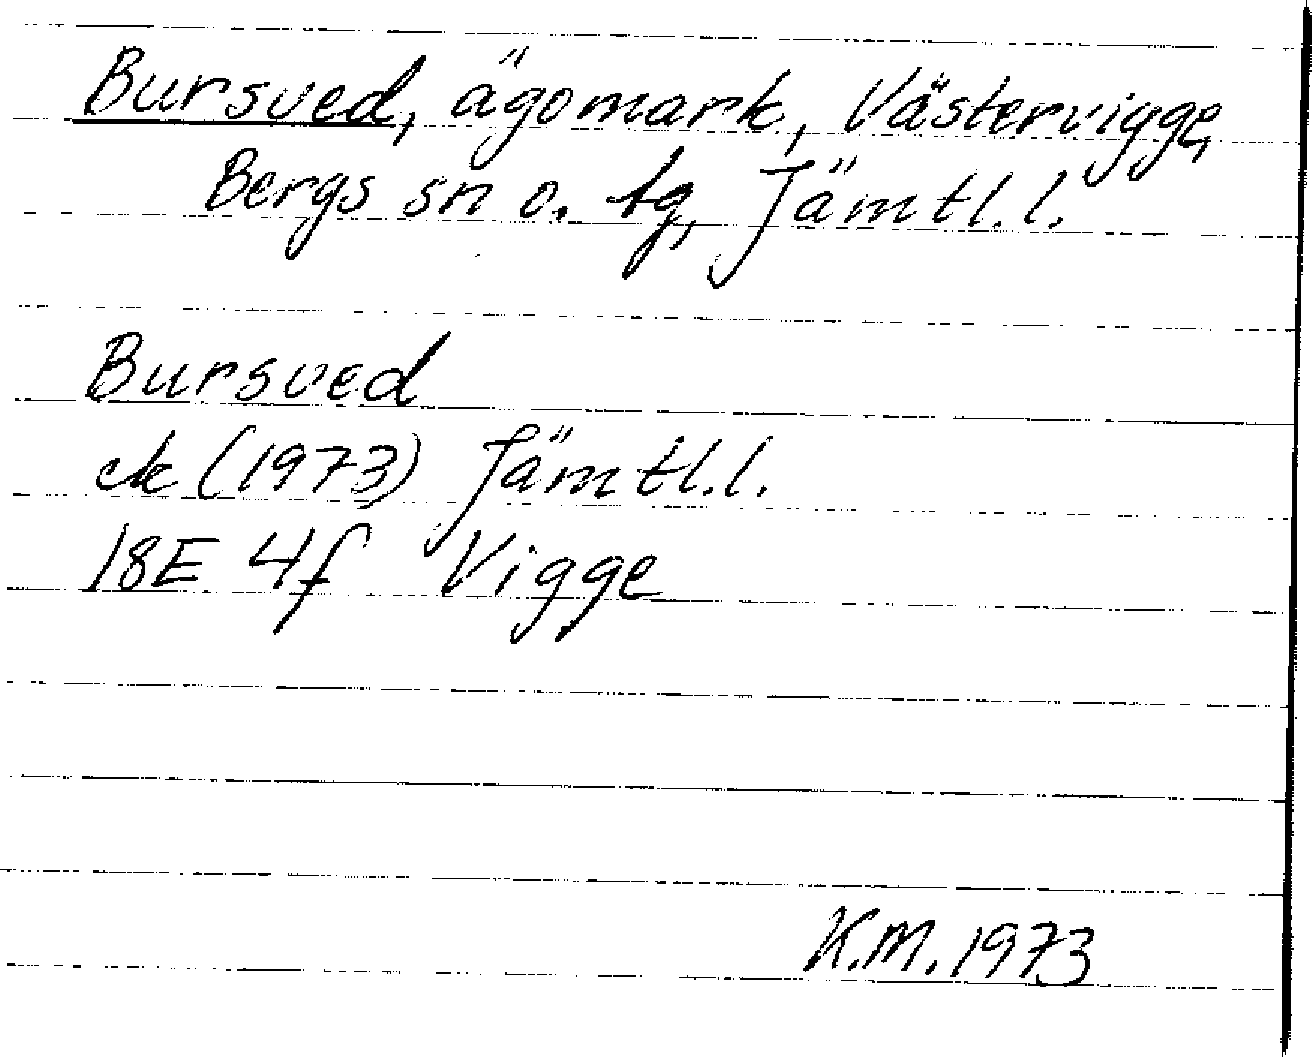 Bursved, ägomark, Västervigge,
Bergs sn o. tg, Jämtl.l.
Bursved
ek (1973) Jämtl.l.
18E 4f Vigge
K.M. 1973